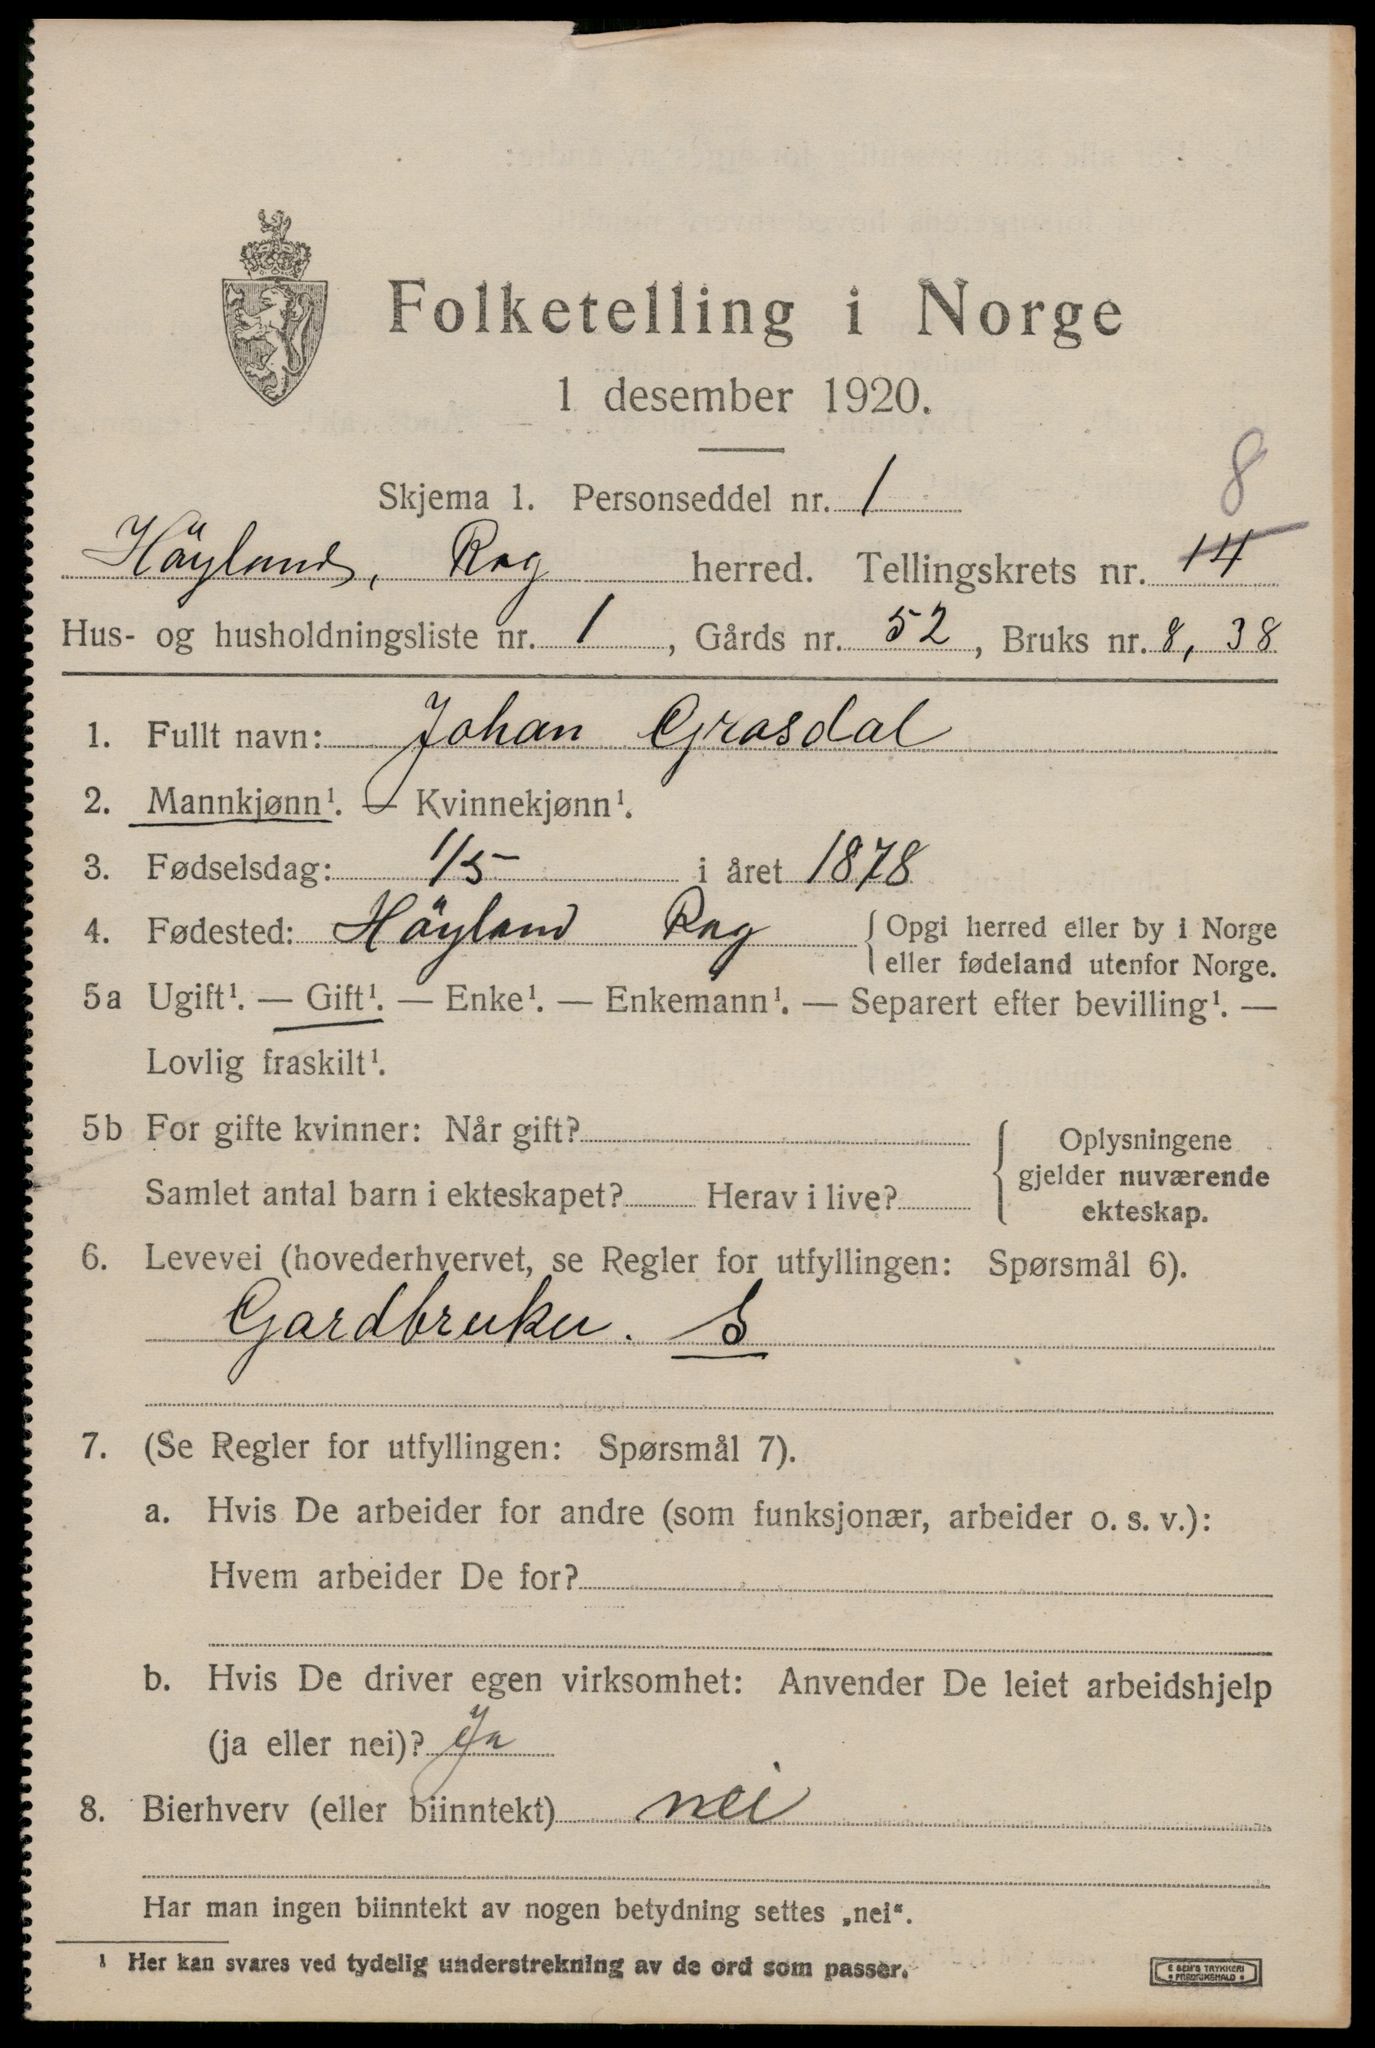 Folketelling i Norge
1 desember 1920.
Skjema 1. Personseddel nr. 1
8
Höyland, Rog herred. Tellingskrets nr. 14
Hus- og husholdningsliste nr. 1, Gårds nr. 52, Bruks nr. 8, 38
1. Fullt navn: Johan Grasdal
2. Mannkjønn¹. — Kvinnekjønn¹.
3. Fødselsdag: 1/5 i året 1878
4. Fødested: Höyland Rog { Opgi herred eller by i Norge
eller fødeland utenfor Norge.
5a Ugift¹. — Gift¹. — Enke¹. — Enkemann¹. — Separert efter bevilling¹. —
Lovlig fraskilt¹.
5b For gifte kvinner: Når gift?
Samlet antal barn i ekteskapet? Herav i live?
{ Oplysningene
gjelder nuværende
ekteskap.
6. Levevei (hovederhvervet, se Regler for utfyllingen: Spørsmål 6).
Gardbruker. S
7. (Se Regler for utfyllingen: Spørsmål 7).
a. Hvis De arbeider for andre (som funksjonær, arbeider o. s. v.):
Hvem arbeider De for?
b. Hvis De driver egen virksomhet: Anvender De leiet arbeidshjelp
(ja eller nei)? Ja
8. Bierhverv (eller biinntekt) nei
Har man ingen biinntekt av nogen betydning settes „nei“.
¹ Her kan svares ved tydelig understrekning av de ord som passer.
E SEM'S TRYKKERI
FREDRIKSHALD